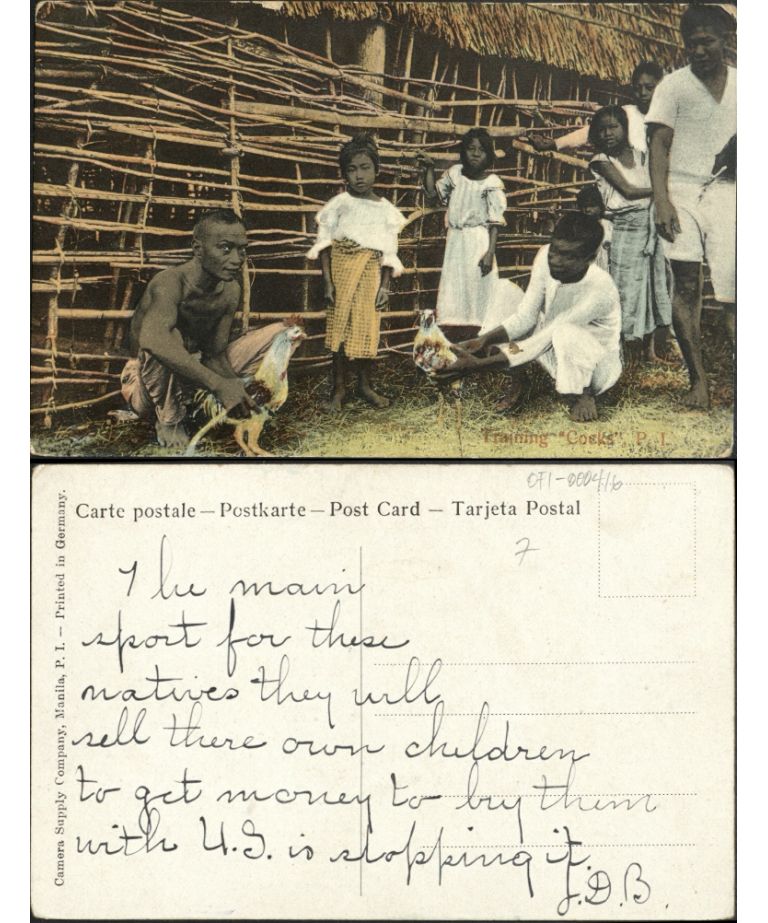 Training "Cocks", P. I.
OTI-000416
Carte postale — Postkarte — Post Card — Tarjeta Postal
7
Camera Supply Company, Manila, P. I. — Printed in Germany.
The main
sport for these
natives they will
sell there own children
to get money to buy them
with U.S. is stopping it.
J.D.B.